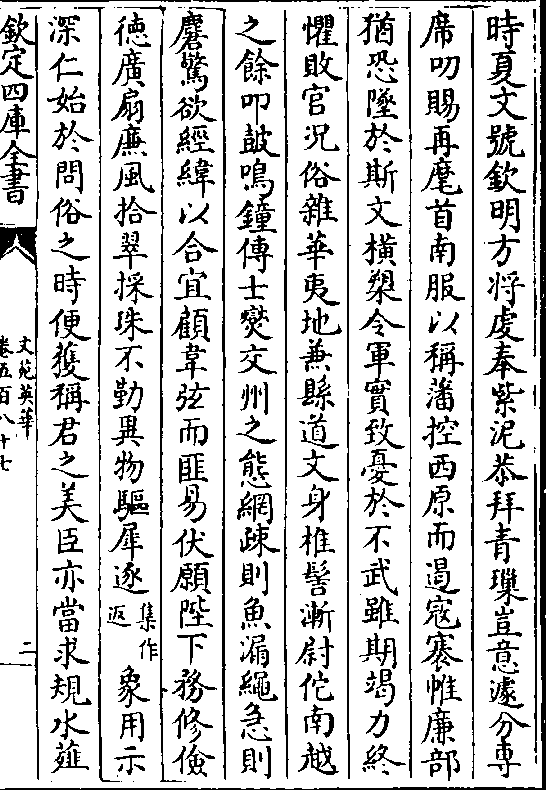 時夏文號欽明方将虔奉紫泥恭拜青璅豈意遽分専
席叨賜再麾首南服以稱藩控西原而遏寇褰帷廉部
猶恐墜於斯文橫槊令軍實致憂於不武雖期竭力終
懼敗官况俗雜華夷地兼縣道文身椎髻漸尉佗南越
之餘叩皷鳴鐘傳士燮交州之態網疎則魚漏繩急則
麏驚欲經緯以合宜顧韋弦而匪易伏願陛下務修儉
徳廣扇㢘風拾翠採珠不勤異物驅犀逐集作返象用示
深仁始於問俗之時便獲稱君之美臣亦當求規水薤
欽定四庫全書
文苑英華
卷五百八十七
二